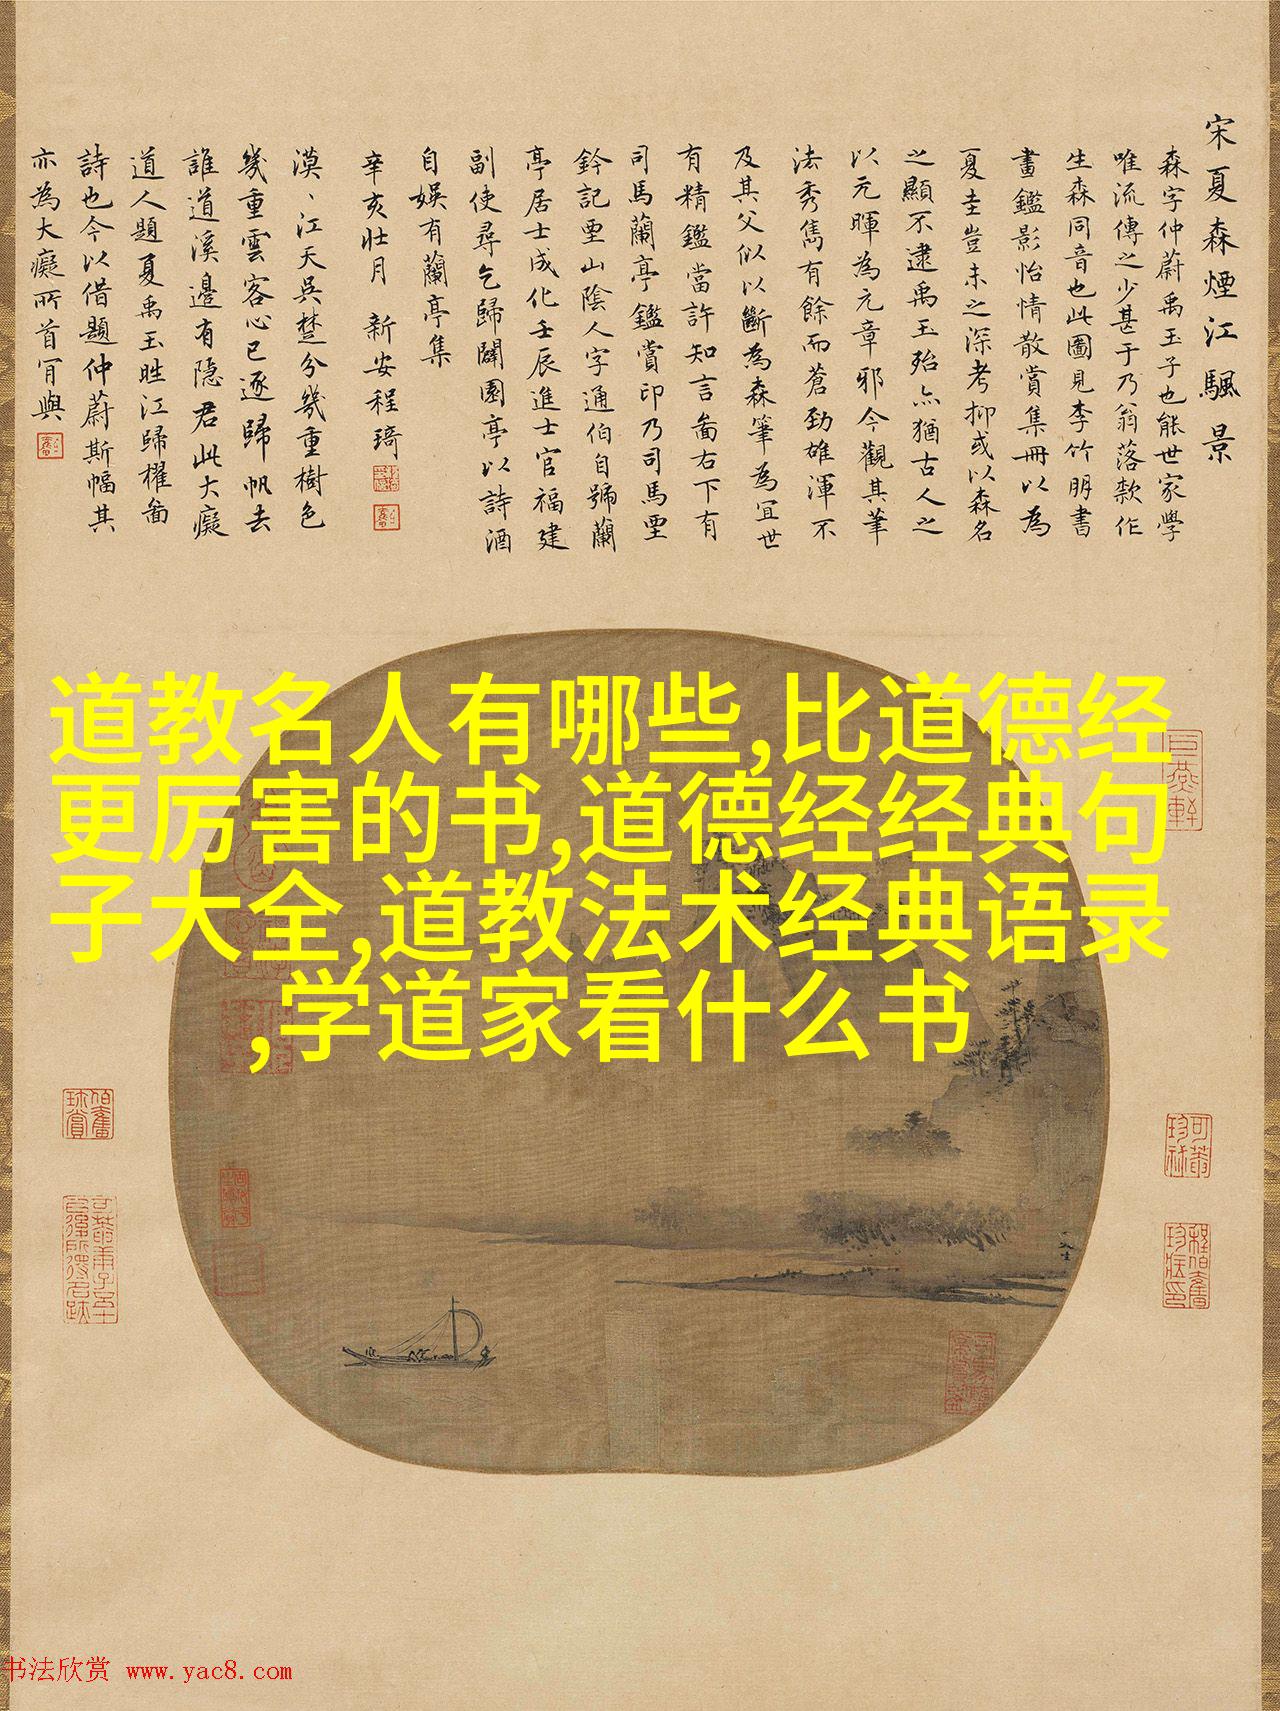 宋夏森煙江颿景
森字仲蔚禹玉子也能世家學
唯流傳之少甚于乃翁落款作
生森同音也此圖見李竹朋書
畫鑑影怡情散賞集冊以為
夏圭豈未之深考抑或以森名
之顯不逮禹玉殆亦猶古人之
以元暉為元章邪今觀其筆
法秀雋有餘而蒼勁雄渾不
及其父似以斷為森筆為宜世
有精鑑當許知言畗右下有
司馬蘭亭鑑賞印乃司馬垔
鈐記垔山陰人字通伯自號蘭
亭居士成化壬辰進士官福建
副使尋乞歸闢園亭以詩酒
自娛有蘭亭集
辛亥壯月 新安程琦
漠、江天吳楚分幾重樹色
幾重雲客心已逐歸帆去
誰道溪邊有隱君此大癡
道人題夏禹玉胜江歸櫂畗
詩也今以借題仲蔚斯幅其
亦為大癡所首肎與
道教名人有哪些,比道德经
更厉害的书,道德经经典句
子大全,道教法术经典语录
,学道家看什么书
书法欣赏 www.yac8.com